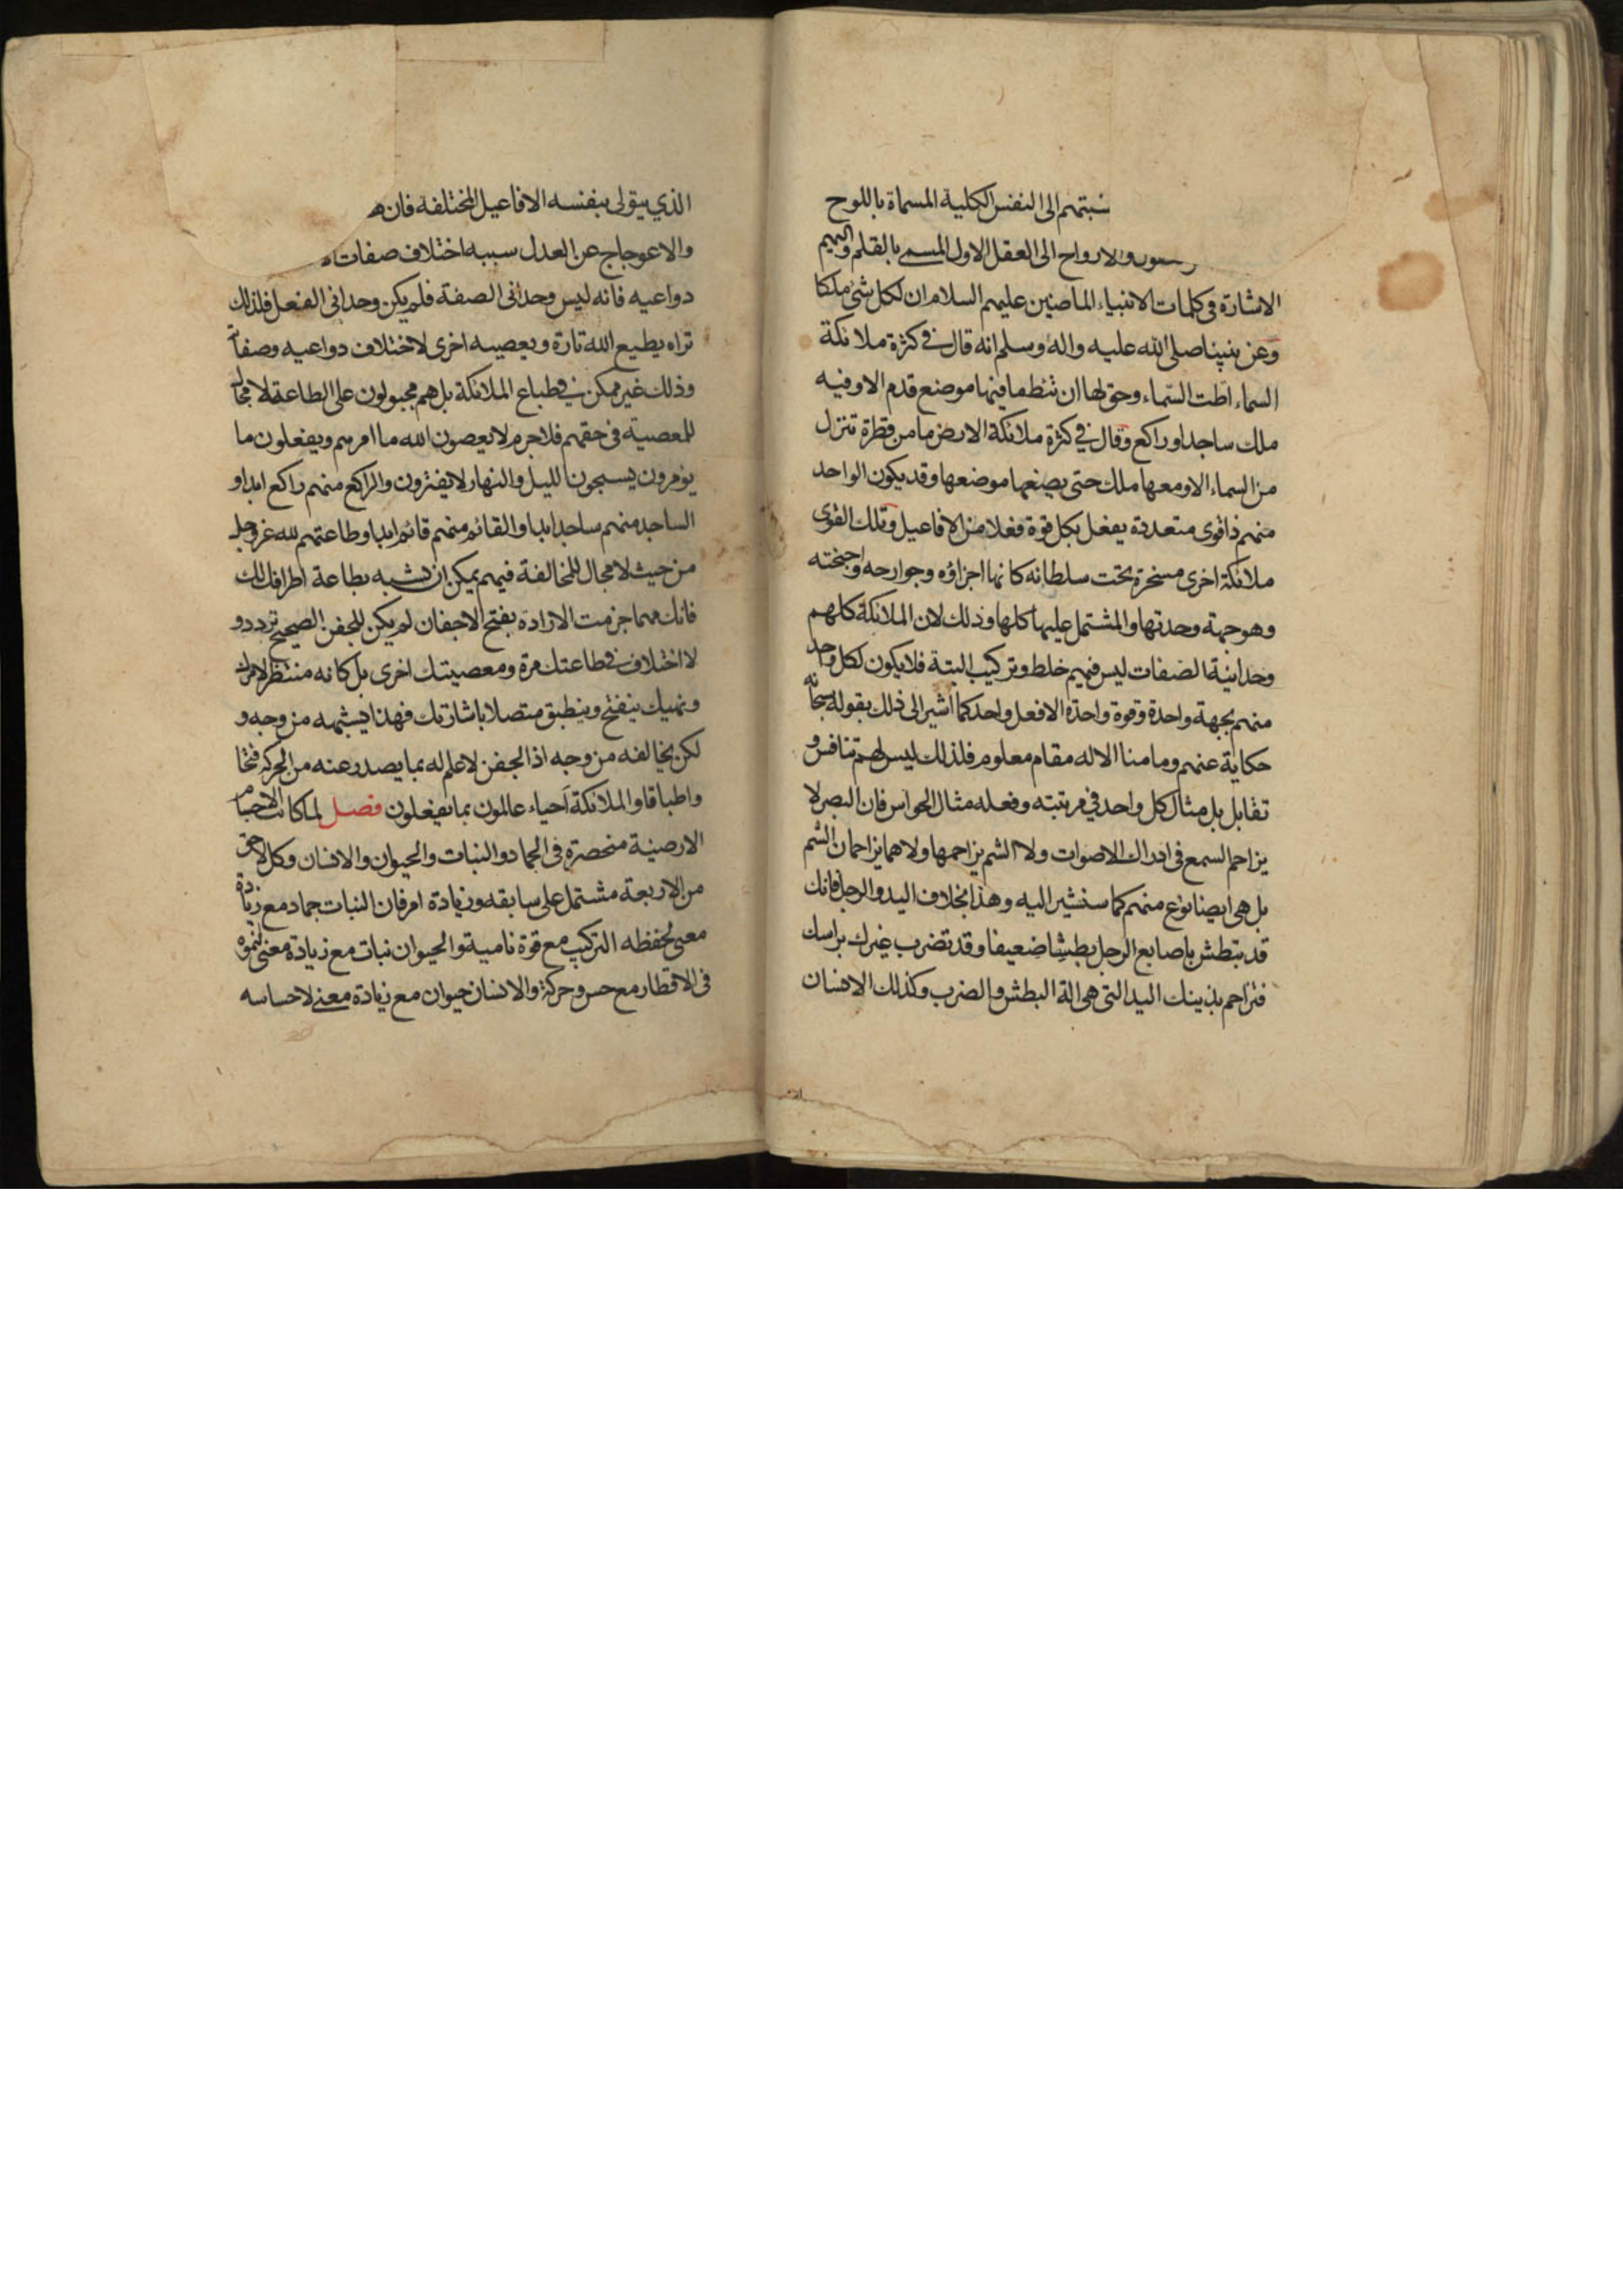 نسبتهم الى النفس الكلية المسماة باللوح
والارواح الى العقل الاول المسمى بالقلم واليهم
الاشارة في كلمات الانبياء الماضين عليهم السلام ان لكل شئ ملكا
وعن نبينا صلى الله عليه واله وسلم انه قال في كثرة ملائكة
السماء اطت السماء وحق لها ان تئط ما فيها موضع قدم الا وفيه
ملك ساجد او راكع وقال في كثرة ملائكة الارض ما من قطرة تنزل
من السماء الا ومعها ملك حتى يضعها موضعها وقد يكون الواحد
منهم ذا قوى متعددة يفعل بكل قوة فعلا من الافاعيل وتلك القوى
ملائكة اخرى مسخرة تحت سلطانه كانها اجزاؤه وجوارحه واجنحته
وهو جهة وحدتها والمشتمل عليها كلها وذلك لان الملائكة كلهم
وحدانية الصفات ليس فيهم خلط وتركيب البتة فلا يكون لكل واحد
منهم بجهة واحدة وقوة واحدة الا فعل واحد كما اشير الى ذلك بقوله سبحانه
حكاية عنهم وما منا الا له مقام معلوم فلذلك ليس لهم تنافس و
تقابل بل مثال كل واحد في مرتبته وفعله مثال الحواس فان البصر لا
يزاحم السمع في ادراك الاصوات ولا الشم يزاحمها ولا هما يزاحمان الشم
بل هي ايضا نوع منهم كما سنشير اليه وهذا بخلاف اليد والرجل فانك
قد تبطش باصابع الرجل بطشا ضعيفا وقد تضرب غيرك براسك
فتزاحم بذينك اليد التي هي الة البطش والضرب وكذلك الانسان
الذي يتولى بنفسه الافاعيل المختلفة فان
والاعوجاج عن العدل سببه اختلاف صفات
دواعيه فانه ليس وحداني الصفة فلم يكن وحداني الفعل فلذلك
تراه يطيع الله تارة ويعصيه اخرى لاختلاف دواعيه وصفاته
وذلك غير ممكن في طباع الملائكة بل هم مجبولون على الطاعة لا مجال
للمعصية في حقهم فلا جرم لا يعصون الله ما امرهم ويفعلون ما
يؤمرون يسبحون الليل والنهار لا يفترون والراكع منهم راكع ابدا و
الساجد منهم ساجد ابدا والقائم منهم قائم ابدا وطاعتهم لله عز وجل
من حيث لا مجال للمخالفة فيهم يمكن ان تشبه بطاعة اطرافك لك
فانك مهما جزمت الارادة بفتح الاجفان لم يكن للجفن الصحيح تردد و
لا اختلاف في طاعتك مرة ومعصيتك اخرى بل كانه منتظر لامرك
ونهيك ينفتح وينطبق متصلا باشارتك فهذا يشبهه من وجه و
لكن يخالفه من وجه اذ الجفن لا علم له بما يصدر عنه من الحركة فتحا
واطباقا والملائكة احياء عالمون بما يفعلون فصل لما كانت الاجسام
الارضية منحصرة في الجماد والنبات والحيوان والانسان وكل لاحق
من الاربعة مشتمل على سابقه وزيادة امر فان النبات جماد مع زيادة
معنى لحفظه التركيب مع قوة نامية والحيوان نبات مع زيادة معنى لنموه
في الاقطار مع حس وحركة والانسان حيوان مع زيادة معنى لاحساسه